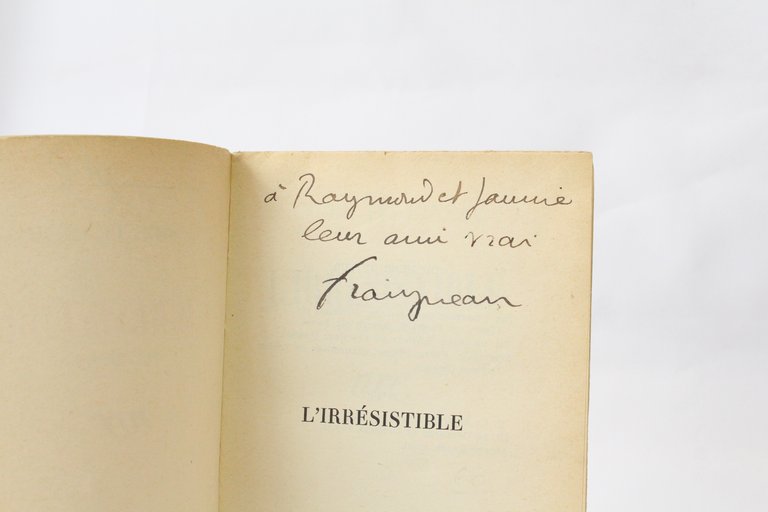 à Raymond et Jannie
leur ami vrai
Fraigneau
L'IRRÉSISTIBLE